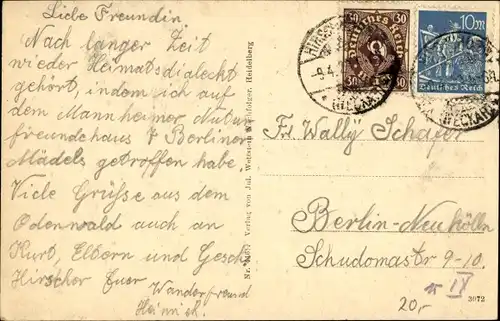 Liebe Freundin
Nach langer Zeit
wieder Heimatsdialecht
gehört, indem ich auf
dem Mannheimer Natur
freundehaus 7 Berliner
Mädels getroffen habe
Viele Grüsse aus dem
Odenwald auch an
Kurt, Eltern und Gesch.
Hirscher Euer
Wanderfreund
Heinrich.
Verlag von Jul. Heidelberg
30 Deutsches Reich 30
30 30
10 m
Deutsches Reich
HIRSCH
(NECKAR)
(NECKAR)
Frl. Wally Schäfer
Berlin-Neukölln
Schudomastr 9-10.
IX
20,-
3072